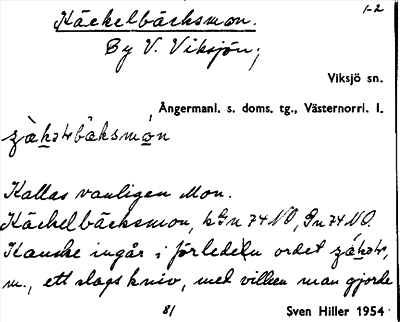 1-2
Käckelbäcksmon.
By V. Viksjön,
Viksjö sn.
Ångermanl. s. doms. tg., Västernorrl. l.
Kallas vanligen Mon.
Käckelbäcksmon, kGn 74 NO, Gn 74 NO.
Kanske ingår i förleden ordet
m., ett slags kniv, med vilken man gjorde
81
Sven Hiller 1954